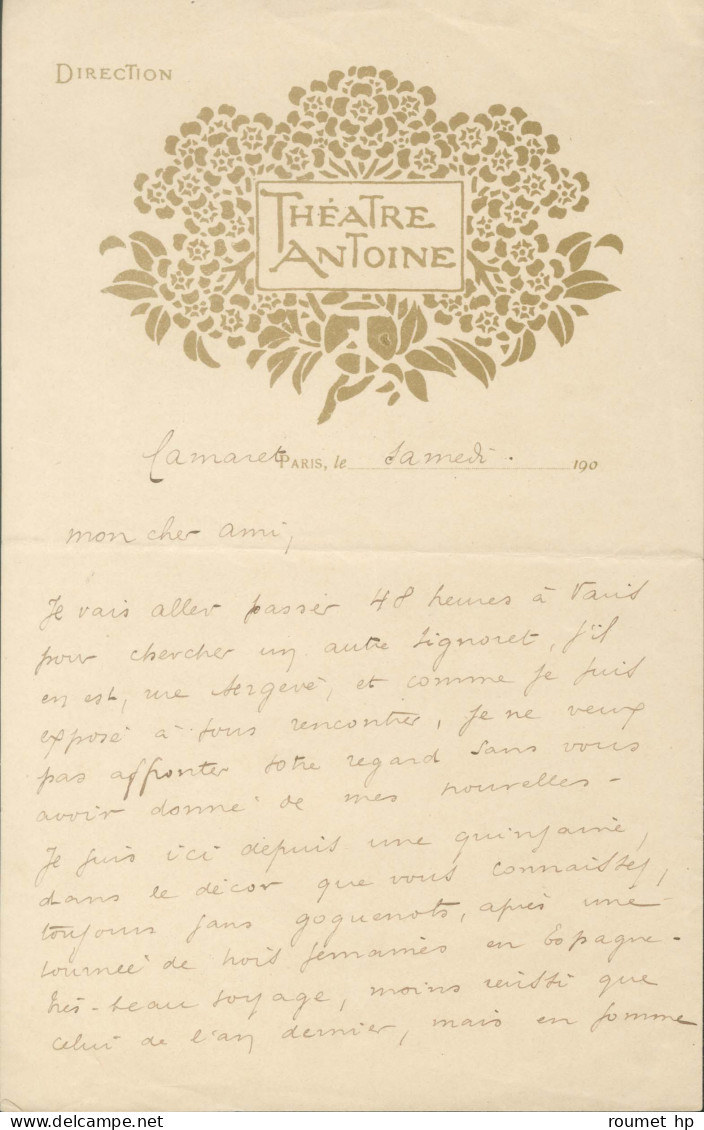 DIRECTION
THÉATRE
ANTOINE
Camaret PARIS, le samedi. 190
mon cher ami,
Je vais aller passer 48 heures à Paris
pour chercher un autre Signoret, s'il
en est, rue Bergère, et comme je suis
exposé à vous rencontrer, je ne veux
pas affronter votre regard sans vous
avoir donné de mes nouvelles -
Je suis ici depuis une quinzaine,
dans le décor que vous connaissez,
toujours sans goguenots, après une
tournée de trois semaines en Espagne -
très-beau voyage, moins réussi que
celui de l'an dernier, mais en somme
roumet hp